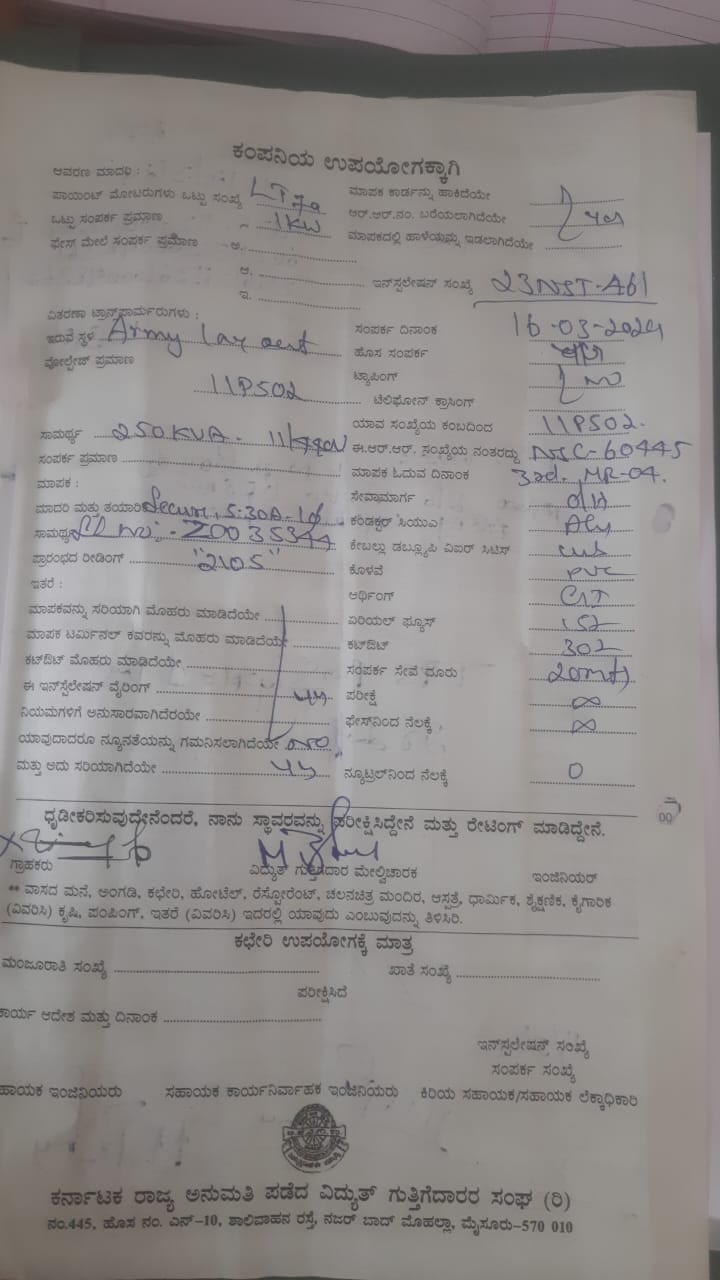 ಕಂಪನಿಯ ಉಪಯೋಗಕ್ಕಾಗಿ
ಆವರಣ ಮಾದರಿ :
ಪಾಯಿಂಟ್ ಮೋಟರುಗಳು ಒಟ್ಟು ಸಂಖ್ಯೆ LT7a ಮಾಪಕ ಕಾರ್ಡನ್ನು ಹಾಕಿದೆಯೇ
ಒಟ್ಟು ಸಂಪರ್ಕ ಪ್ರಮಾಣ 1KW ಆರ್.ಆರ್.ನಂ. ಬರೆಯಲಾಗಿದೆಯೇ yes
ಫೇಸ್ ಮೇಲೆ ಸಂಪರ್ಕ ಪ್ರಮಾಣ ಅ. ಮಾಪಕದಲ್ಲಿ ಹಾಳೆಯನ್ನು ಇಡಲಾಗಿದೆಯೇ
ಆ. ಇನ್‌ಸ್ಟಲೇಷನ್ ಸಂಖ್ಯೆ 23NST-A61
ಇ.
ವಿತರಣಾ ಟ್ರಾನ್ಸ್‌ಫಾರ್ಮರುಗಳು : ಸಂಪರ್ಕ ದಿನಾಂಕ 16-03-2024
ಇರುವ ಸ್ಥಳ Army Layout ಹೊಸ ಸಂಪರ್ಕ
ವೋಲ್ಟೇಜ್ ಪ್ರಮಾಣ ಟ್ಯಾಪಿಂಗ್ No
11PS02 ಟೆಲಿಫೋನ್ ಕ್ರಾಸಿಂಗ್
ಯಾವ ಸಂಖ್ಯೆಯ ಕಂಬದಿಂದ 11PS02.
ಸಾಮರ್ಥ್ಯ 250KVA. ಈ.ಆರ್.ಆರ್. ಸಂಖ್ಯೆಯ ನಂತರದ್ದು NSC-60445
ಸಂಪರ್ಕ ಪ್ರಮಾಣ ಮಾಪಕ ಓದುವ ದಿನಾಂಕ 3rd. MR-04.
ಮಾಪಕ : ಸೇವಾಮಾರ್ಗ O/H
ಮಾದರಿ ಮತ್ತು ತಯಾರಿ Secure, 5-30A-1φ ಕಂಡಕ್ಟರ್ ಸಿಯುಎ Aly
ಸಾಮರ್ಥ್ಯ Sl No:- Z0035344 ಕೇಬಲ್ಲು ಡಬ್ಲ್ಯೂಪಿ ವಿಐರ್ ಸಿಟಿಸ್
ಪ್ರಾರಂಭದ ರೀಡಿಂಗ್ "2105" ಕೊಳವೆ PVC
ಇತರೆ : ಆರ್ಥಿಂಗ್
ಮಾಪಕವನ್ನು ಸರಿಯಾಗಿ ಮೊಹರು ಮಾಡಿದೆಯೇ ಏರಿಯಲ್ ಫ್ಯೂಸ್
ಮಾಪಕ ಟರ್ಮಿನಲ್ ಕವರನ್ನು ಮೊಹರು ಮಾಡಿದೆಯೇ ಕಟ್‌ಔಟ್
ಕಟ್‌ಔಟ್ ಮೊಹರು ಮಾಡಿದೆಯೇ ಸಂಪರ್ಕ ಸೇವೆ ದೂರು 20mts
ಈ ಇನ್‌ಸ್ಟೆಲೇಷನ್ ವೈರಿಂಗ್ yes ಪರೀಕ್ಷೆ ∞
ನಿಯಮಗಳಿಗೆ ಅನುಸಾರವಾಗಿದೆರಯೇ ಫೇಸ್‌ನಿಂದ ನೆಲಕ್ಕೆ ∞
ಯಾವುದಾದರೂ ನ್ಯೂನತೆಯನ್ನು ಗಮನಿಸಲಾಗಿದೆಯೇ No
ಮತ್ತು ಅದು ಸರಿಯಾಗಿದೆಯೇ yes ನ್ಯೂಟ್ರಲ್‌ನಿಂದ ನೆಲಕ್ಕೆ 0
ಧೃಡೀಕರಿಸುವುದೇನೆಂದರೆ, ನಾನು ಸ್ಥಾವರವನ್ನು ಪರೀಕ್ಷಿಸಿದ್ದೇನೆ ಮತ್ತು ರೇಟಿಂಗ್ ಮಾಡಿದ್ದೇನೆ.
ಗ್ರಾಹಕರು ವಿದ್ಯುತ್ ಗುತ್ತಿಗೆದಾರ ಮೇಲ್ವಿಚಾರಕ ಇಂಜಿನಿಯರ್
** ವಾಸದ ಮನೆ, ಅಂಗಡಿ, ಕಛೇರಿ, ಹೋಟೆಲ್, ರೆಸ್ಟೋರೆಂಟ್, ಚಲನಚಿತ್ರ ಮಂದಿರ, ಆಸ್ಪತ್ರೆ, ಧಾರ್ಮಿಕ, ಶೈಕ್ಷಣಿಕ, ಕೈಗಾರಿಕ
(ವಿವರಿಸಿ) ಕೃಷಿ, ಪಂಪಿಂಗ್, ಇತರೆ (ವಿವರಿಸಿ) ಇದರಲ್ಲಿ ಯಾವುದು ಎಂಬುವುದನ್ನು ತಿಳಿಸಿರಿ.
ಕಛೇರಿ ಉಪಯೋಗಕ್ಕೆ ಮಾತ್ರ
ಮಂಜೂರಾತಿ ಸಂಖ್ಯೆ ಖಾತೆ ಸಂಖ್ಯೆ
ಪರೀಕ್ಷಿಸಿದೆ
ಕಾರ್ಯ ಆದೇಶ ಮತ್ತು ದಿನಾಂಕ
ಇನ್‌ಸ್ಟಲೇಷನ್ ಸಂಖ್ಯೆ
ಸಂಪರ್ಕ ಸಂಖ್ಯೆ
ಹಾಯಕ ಇಂಜಿನಿಯರು ಸಹಾಯಕ ಕಾರ್ಯನಿರ್ವಾಹಕ ಇಂಜಿನಿಯರು ಕಿರಿಯ ಸಹಾಯಕ/ಸಹಾಯಕ ಲೆಕ್ಕಾಧಿಕಾರಿ
ಕರ್ನಾಟಕ ರಾಜ್ಯ ಅನುಮತಿ ಪಡೆದ ವಿದ್ಯುತ್ ಗುತ್ತಿಗೆದಾರರ ಸಂಘ (ರಿ)
ನಂ.445, ಹೊಸ ನಂ. ಎನ್-10, ಶಾಲಿವಾಹನ ರಸ್ತೆ, ನಜರ್ ಬಾದ್ ಮೊಹಲ್ಲಾ, ಮೈಸೂರು-570 010